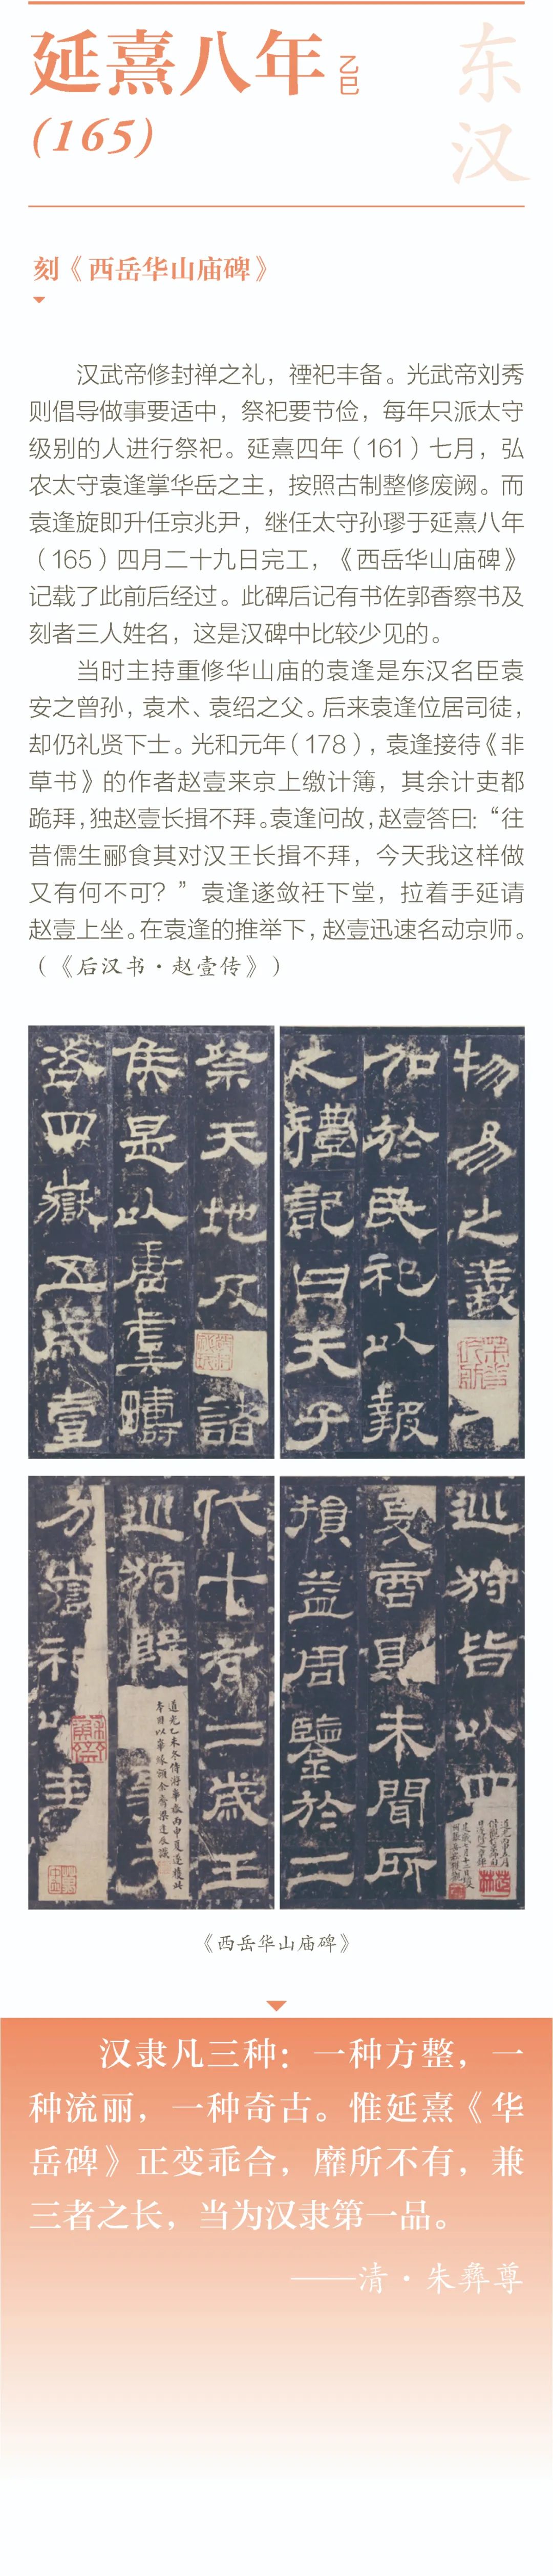 延熹八年 乙巳
(165)
东汉
刻《西岳华山庙碑》
汉武帝修封禅之礼，禋祀丰备。光武帝刘秀
则倡导做事要适中，祭祀要节俭，每年只派太守
级别的人进行祭祀。延熹四年（161）七月，弘
农太守袁逢掌华岳之主，按照古制整修废阙。而
袁逢旋即升任京兆尹，继任太守孙璆于延熹八年
（165）四月二十九日完工，《西岳华山庙碑》
记载了此前后经过。此碑后记有书佐郭香察书及
刻者三人姓名，这是汉碑中比较少见的。
当时主持重修华山庙的袁逢是东汉名臣袁
安之曾孙，袁术、袁绍之父。后来袁逢位居司徒，
却仍礼贤下士。光和元年（178），袁逢接待《非
草书》的作者赵壹来京上缴计簿，其余计吏都
跪拜，独赵壹长揖不拜。袁逢问故，赵壹答曰：“往
昔儒生郦食其对汉王长揖不拜，今天我这样做
又有何不可？”袁逢遂敛衽下堂，拉着手延请
赵壹上坐。在袁逢的推举下，赵壹迅速名动京师。
（《后汉书·赵壹传》）
物易之义
加於民祀以報
之禮記曰天子
祭天地及諸
侯是以唐虞疇
咨四嶽五歲壹
巡狩皆以四
夏商則未聞所
損益周鑒於二
代十有二歲王
巡狩殷
方嶽祀以圭
《西岳华山庙碑》
汉隶凡三种：一种方整，一
种流丽，一种奇古。惟延熹《华
岳碑》正变乖合，靡所不有，兼
三者之长，当为汉隶第一品。
——清·朱彝尊